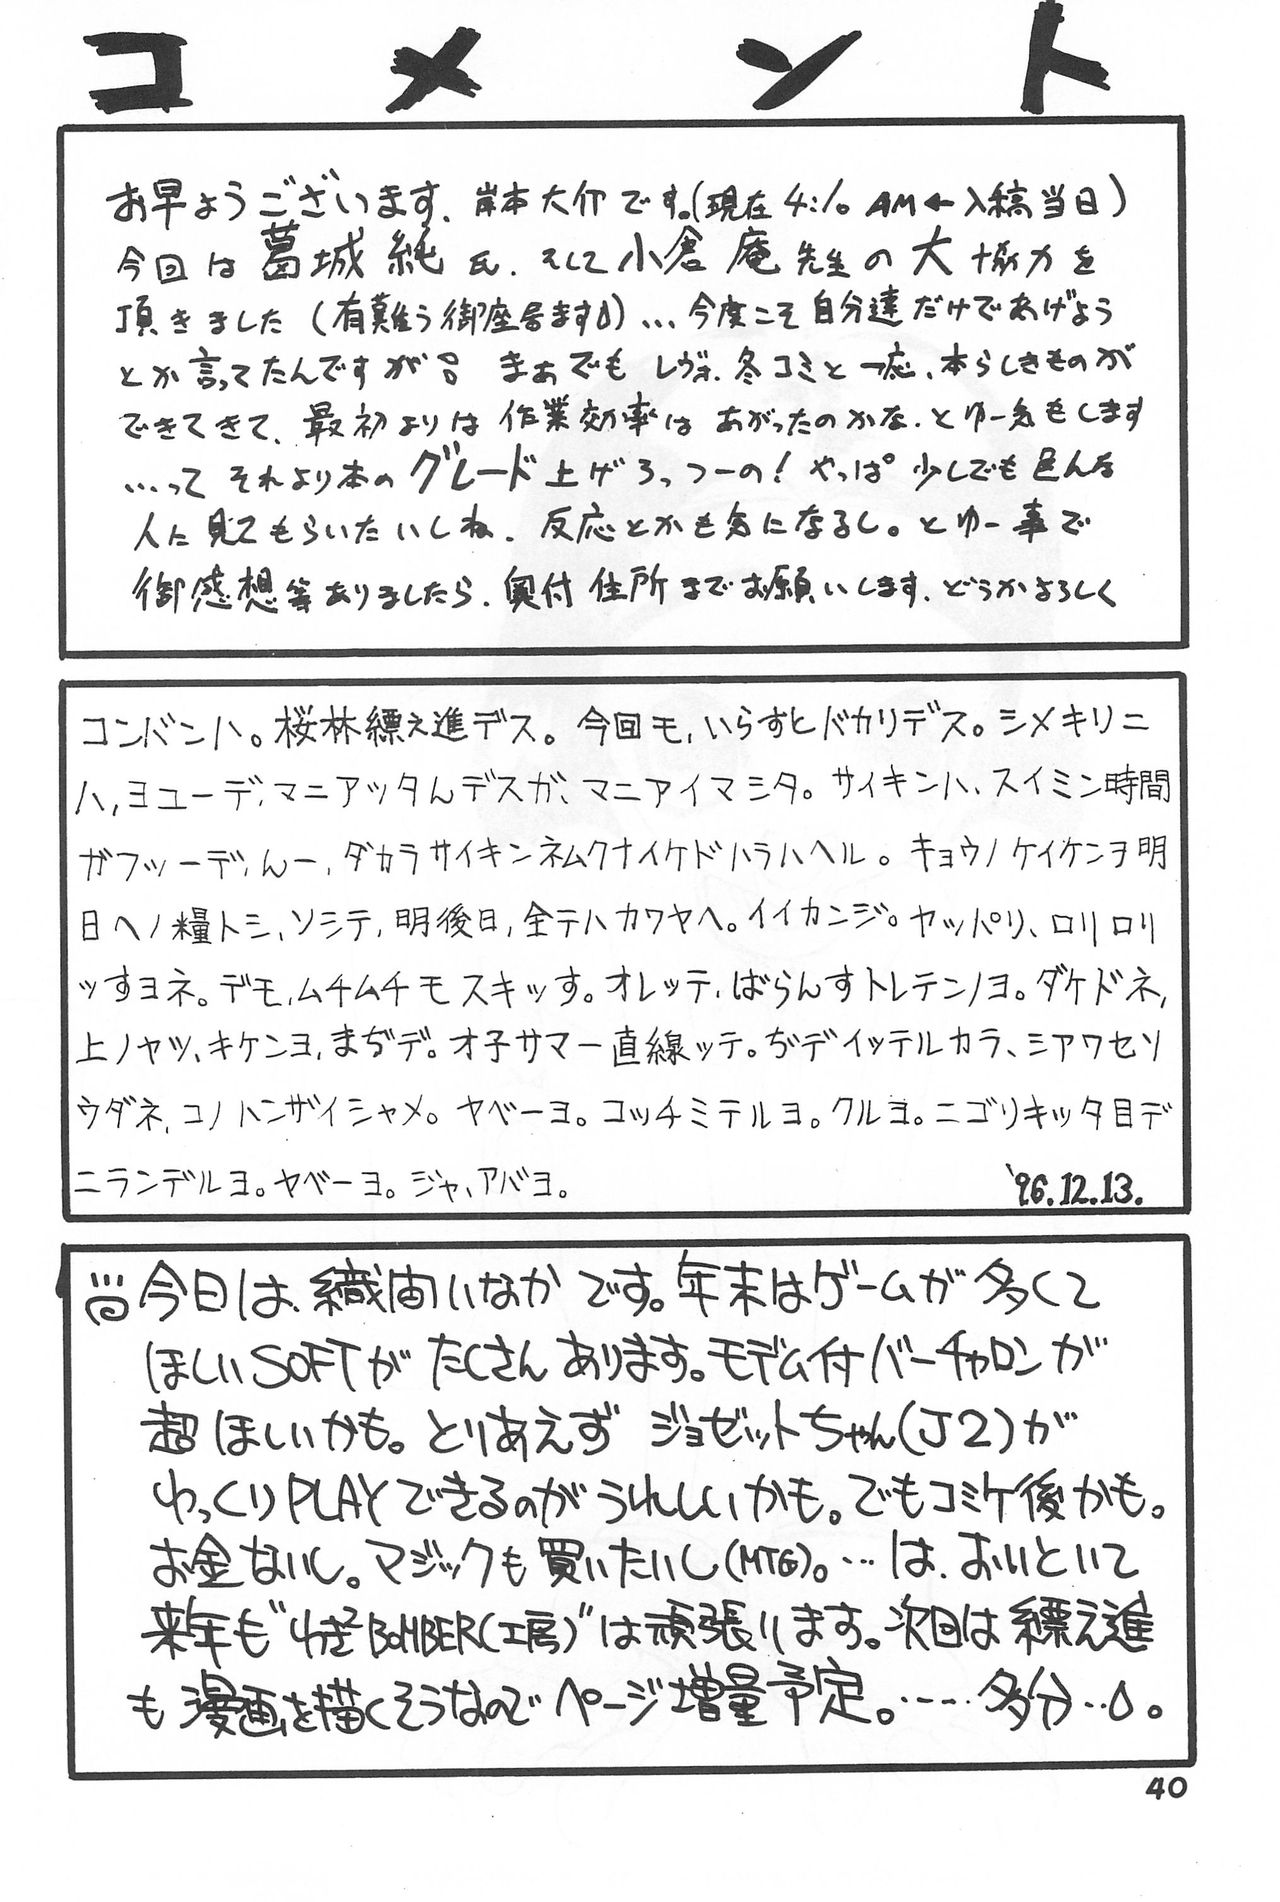 コメント
お早ようございます、岸本大介です。(現在4:10 AM←入稿当日)
今回は葛城純氏、そして小倉庵先生の大協力を
頂きました(有難う御座居ます)…今度こそ自分達だけであげよう
とか言ってたんですが まぁでも レヴォ、冬コミと一応、本らしきものが
できてきて、最初よりは作業効率はあがったのかな、とゆー気もします
…って それより本のグレード上げろっつーの! やっぱ 少しでも色んな
人に見てもらいたいしね、反応とかも気になるし。とゆー事で
御感想等ありましたら、奥付住所までお願いします、どうかよろしく
コンバンハ。桜林縹え進デス。今回モ、いらすとバカリデス。シメキリニ
ハ、ヨユーデ、マニアッタんデスガ、マニアイマシタ。サイキンハ、スイミン時間
ガフツーデ、んー、ダカラサイキンネムクナイケドハラハヘル。キョウノケイケンヲ明
日ヘノ糧トシ、ソシテ、明後日、全テハカワヤヘ。イイカンジ。ヤッパリ、ロリロリ
ッすヨネ。デモ、ムチムチモスキッす。オレッテ、ばらんすトレテンノヨ。ダケドネ、
上ノヤツ、キケンヨ、まぢデ。オ子サマ一直線ッテ。ぢデイッテルカラ、シアワセソ
ウダネ、コノハンザイシャメ。ヤベーヨ。コッチミテルヨ。クルヨ。ニゴリキッタ目デ
ニランデルヨ。ヤベーヨ。ジャ、アバヨ。 '96.12.13.
今日は、織宙いなかです。年末はゲームが多くて
ほしいSOFTがたくさんあります。モデム付バーチャロンが
超ほしいかも。とりあえずジョゼットちゃん(J2)が
ゆっくりPLAYできるのがうれしいかも。でもコミケ後かも。
お金ないし。マジックも買いたいし(MTG)。…は、おいといて
来年も"わき2BOMBER(工房)"は頑張ります。次回は縹え進
も漫画を描くそうなのでページ増量予定。……多分…。
40